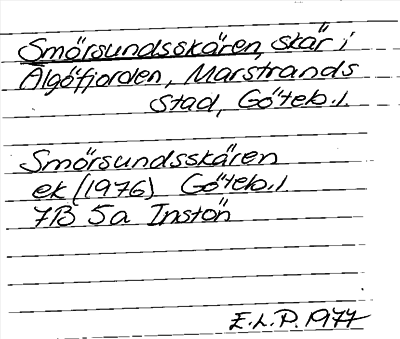 Smörsundsskären, skär i
Älgöfjorden, Marstrands
stad, Göteb.l.
Smörsundsskären
ek (1976) Göteb.l
7B 5a Instön
E.L.P. 1977